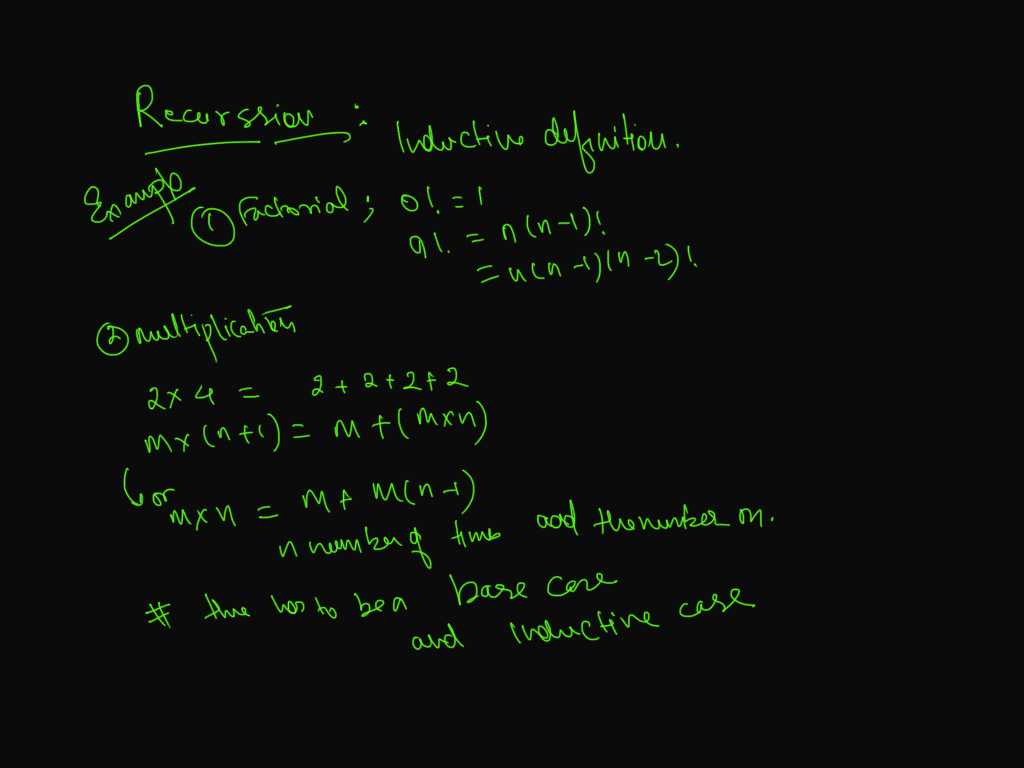 Recurssion : Inductive definition.
Example ① Factorial ; 0! = 1
n! = n(n-1)!
= n(n-1)(n-2)!
② multiplication
2 x 4 = 2 + 2 + 2 + 2
m x (n+1) = m + (m x n)
or m x n = m + m(n-1)
n number of times add the number m.
# there has to be a base case
and inductive case